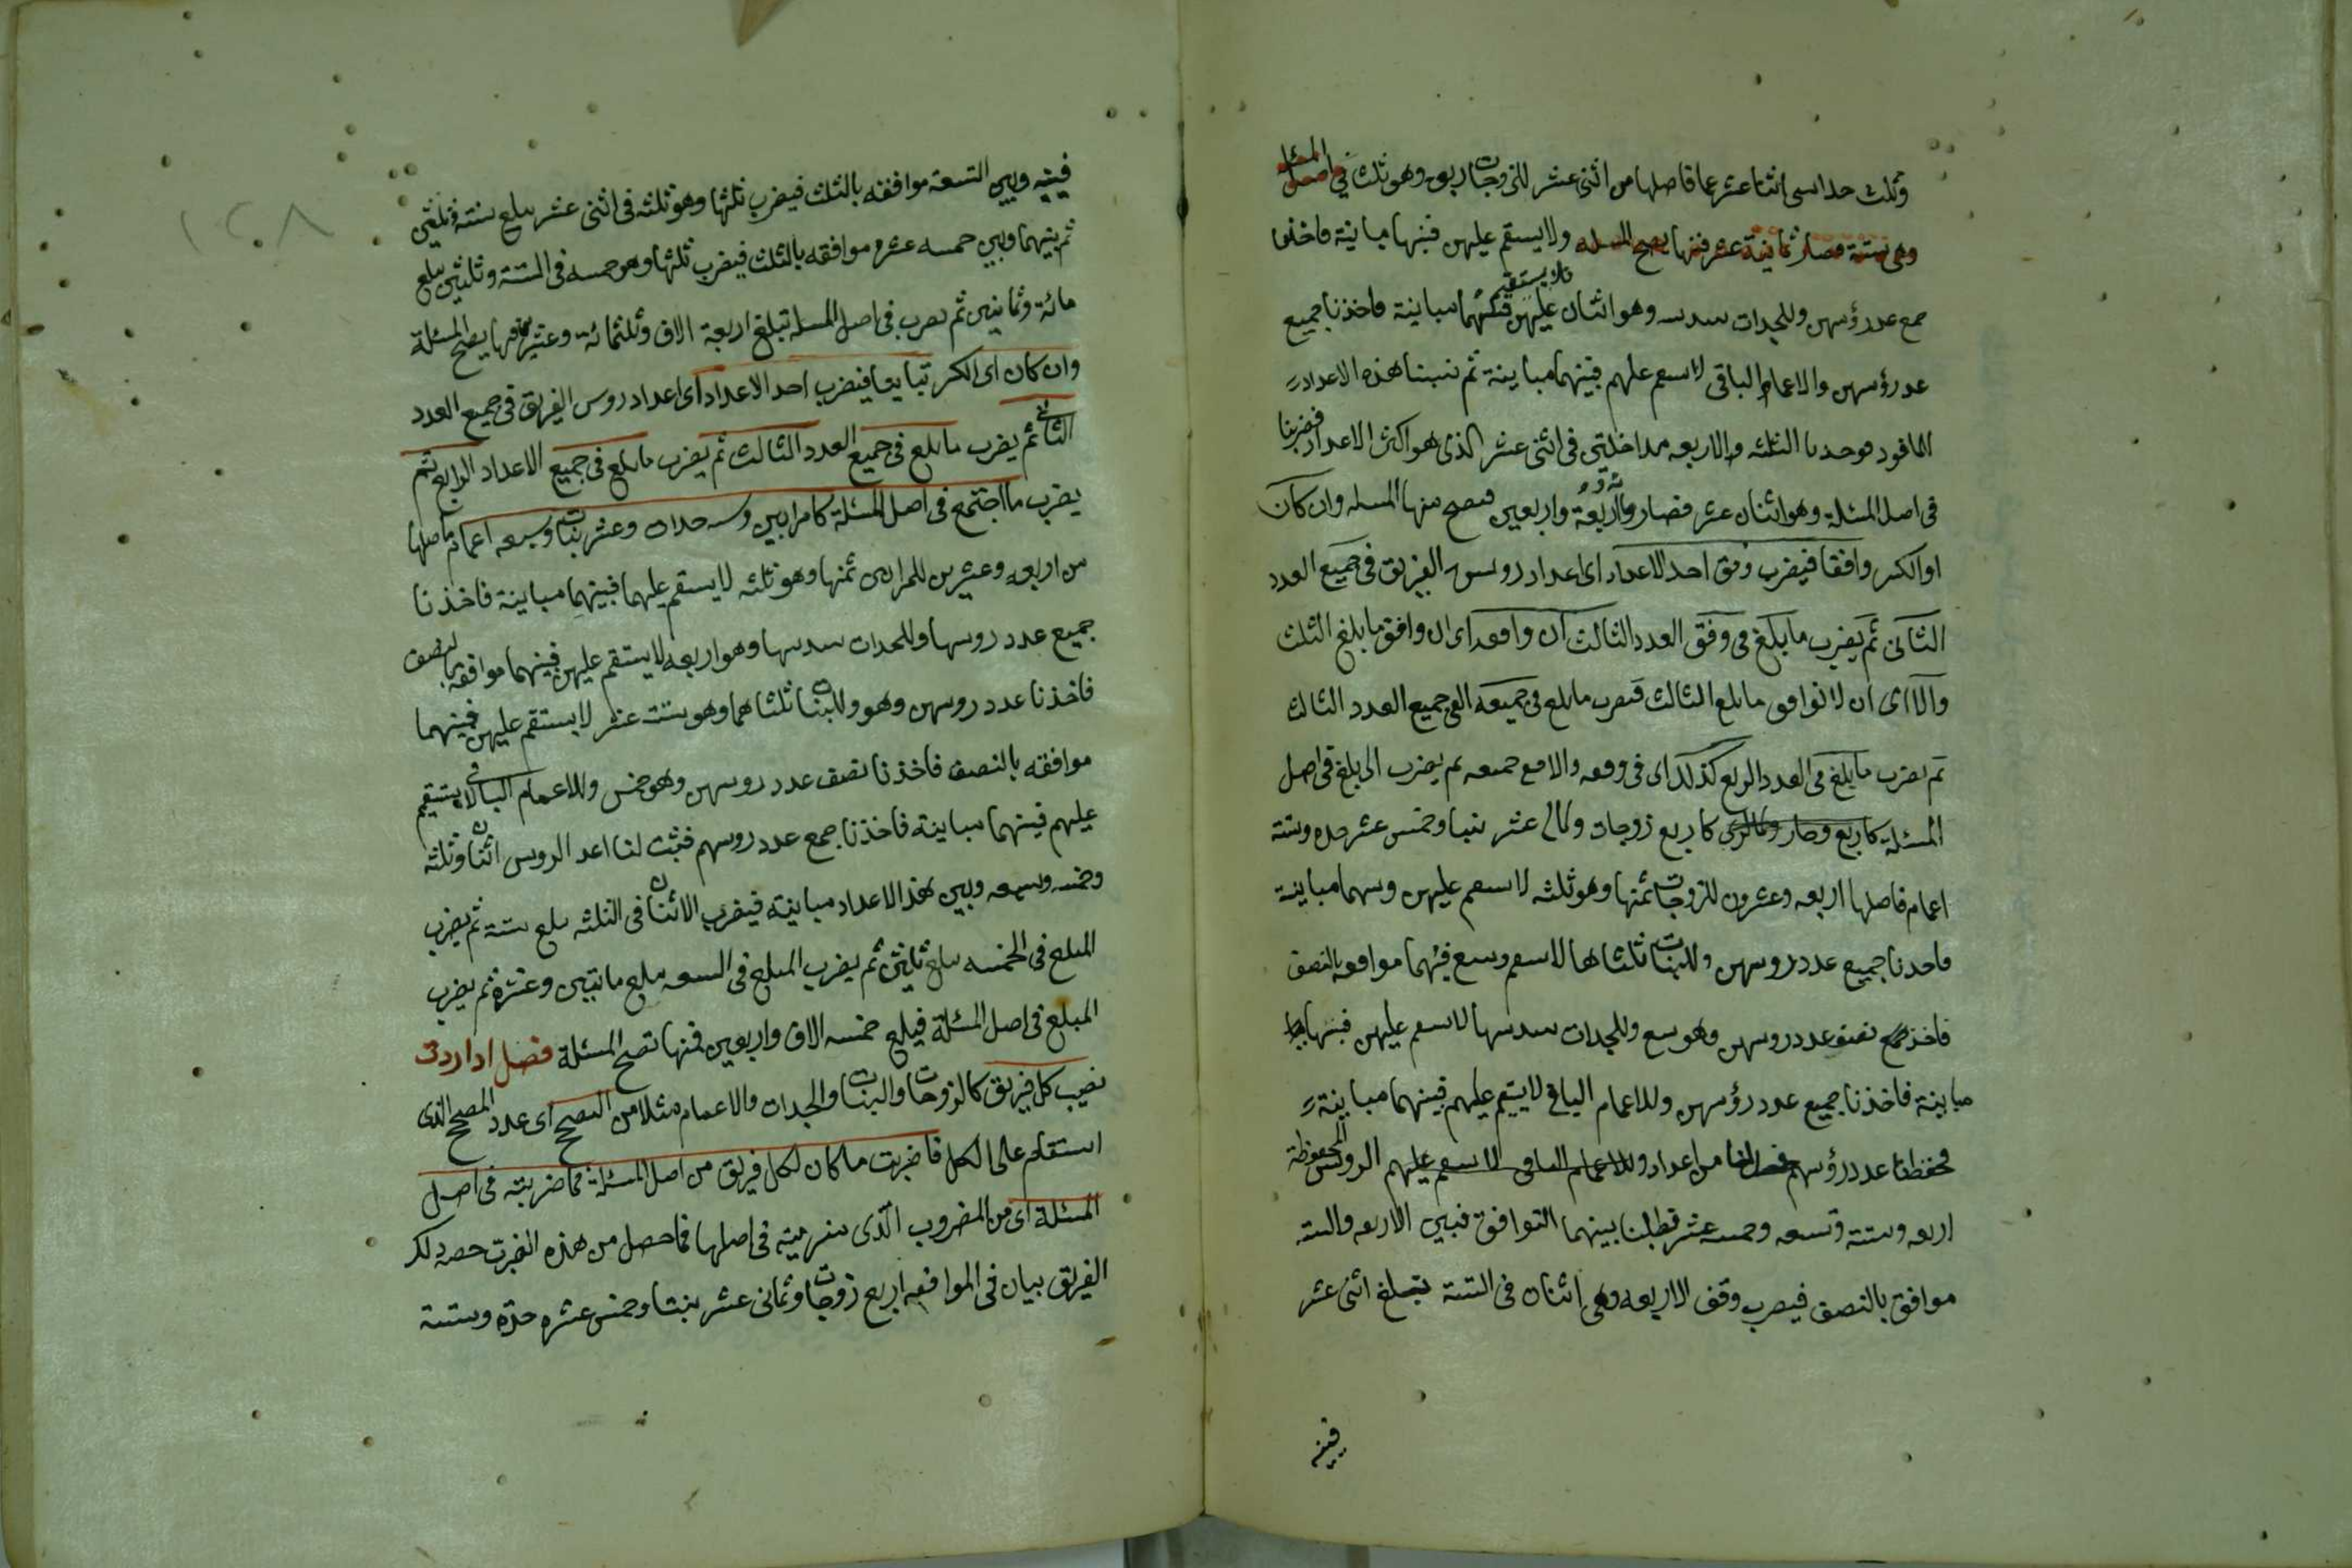 وثلث حدا سى اثنا عشر عما فاصلها من اثنى عشر للزوجات ربعه وهو ثلث في اصل المسئلة
وهى ستة فصار ثمانية عشر فمنها يصح المسله ولا يستقم عليهن فبينها مباينة فاخذنا
جمع عدد رؤسهن وللجدات سدسه وهو اثنان فلا يستقيم عليهن فبينهما مباينة فاخذنا جميع
عدد رؤسهن والاعمام الباقى لا سعم علهم فبينهما مباينة ثم نسبنا هذه الاعداد
فوحدنا الثلثه والاربعه مداخلتى فى اثنى عشر الذى هو اكثر الاعداد فضربنا
فى اصل المسئلة وهو اثنان عشر فصار مائة واربعة واربعين فتصح منها المسله وان كان
او اكثر وافقا فيضرب وفق احد الاعداد اى اعداد روس الفريق فى جميع العدد
الثانى ثم يضرب ما بلغ فى وفق العدد الثالث ان وافقه اى ان وافق ما بلغ الثلث
والا اى ان لا توافق ما بلغ الثالث فيضرب ما بلغ فى جميعه الى جميع العدد الثالث
ثم يضرب ما بلغ فى العدد الربع كذلك اى فى وفقه والا مع جميعه ثم يضرب الى بلغ فى اصل
المسئلة كاربع زوجات وثمانى عشر بنتا وخمس عشر جده وستة
اعمام فاصلها اربعه وعشرون للزوجات ثمنها وهو ثلثه لا سعم عليهن وسهما مباينة
فاحدنا جميع عدد روسهن وللبنات ثلثاها لا سعم وسع فبنهما موافقه بالنصف
فاخذ نصف عدد روسهن وهو سع وللجدات سدسها لا سعم عليهن فبنها
مباينة فاخذنا جميع عدد رؤسهن وللاعمام الباقى لا يستقيم عليهم فبينهما مباينة
فحفظنا عدد رؤسهم من اعداد وللاعمام الباقى لا سعم عليهم الروس المحفوظة
اربعه وستة وتسعه وخمسه عشر فطلبنا بينهما التوافق فبين الاربعه والسته
موافق بالنصف فيضرب وقف الاربعه وهى اثنان فى الستة تبلغ اثنى عشر
فبينه
١٢٨
فبينه وبين التسعة موافقه بالثلث فيضرب ثلثها وهو ثلثه فى اثنى عشر يبلغ ستة وثلثين
ثم بينهما وبين خمسه عشر موافقه بالثلث فيضرب ثلثها وهو خمسه فى الستة وثلثين يبلغ
مائة وثمانين ثم يضرب فى اصل المسله تبلغ اربعة الاف وثلثمائة وعشرين فمنها يصح المسئلة
وان كان اى اكثر تباينا فيضرب احد الاعداد اى اعداد روس الفريق فى جميع العدد
الثانى ثم يضرب ما بلغ فى جميع العدد الثالث ثم يضرب ما بلغ فى جميع الاعداد الرابع ثم
يضرب ما اجتمع فى اصل المسئلة كامراتين وسه جدات وعشر بنات وسبعه اعمام فاصلها
من اربعه وعشرين للمراتين ثمنها وهو ثلثه لا يستقم عليهما فبينهما مباينة فاخذنا
جميع عدد روسها وللجدات سدسها وهو اربعه لا يستقم عليهن فبينهما موافقه بالنصف
فاخذنا عدد روسهن وهو وللبنات ثلثاهما وهو ستة عشر لا يستقم عليهن فبينهما
موافقه بالنصف فاخذنا نصف عدد روسهن وهو خمس وللاعمام الباقى لا يستقيم
عليهم فبينهما مباينة فاخذنا جمع عدد روسهم فثبت لنا اعد الروس اثنان وثلثه
وخمسه وسبعه وبين هذ الاعداد مباينة فيضرب الاثنان فى الثلثه يبلغ ستة ثم يضرب
المبلغ فى الخمسه يبلغ ثلثين ثم يضرب المبلغ فى السبعه يبلغ مائتين وعشرة ثم يضرب
المبلغ فى اصل المسئلة فيبلغ خمسه الاف واربعين فمنها تصح المسئلة فصل اذا اردت
نصيب كل فريق كالزوجات والبنات والجدات والاعمام مثلا من التصحيح اى عدد المصحح الذى
استقام على الكل فاضربت ما كان لكل فريق من اصل المسئلة فما ضربته فى اصل
المسئلة اى من المضروب الذى ضربته فى اصلها فما حصل من هذه الضرب حصه لكل
الفريق بيان فى الموافقه اربع زوجات وثمانى عشر بنتا وخمس عشره جدة وستة